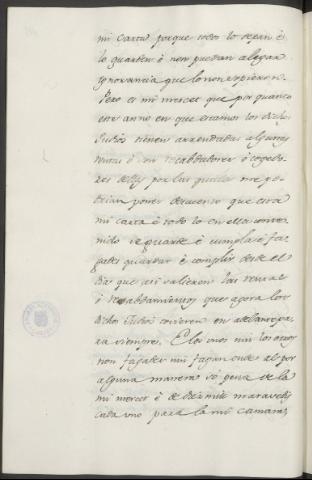 mi Carta porque todos lo sepan è
lo guarden è non puedan alegar
ignorancia que lo non sopieron.
Pero es mi merced que por quanto
este anno en que estamos los dichos
Judios tienen arrendadas algunas
rentas è son recabdadores è cogedo-
res dellas por las quales se po-
drian poner que esta
mi carta è todo lo en ella conte-
nido se guarde è cumpla è fa-
gades guardar è complir desde el
dia que asi salieren las rentas
è recabdamientos que agora los
dichos Judios tovieren en adelante pa-
ra siempre. E los unos nin los otros
non fagades nin fagan ende al por
alguna manera so pena de la
mi merced è de diez mil maravedis
cada uno para la mi camara,